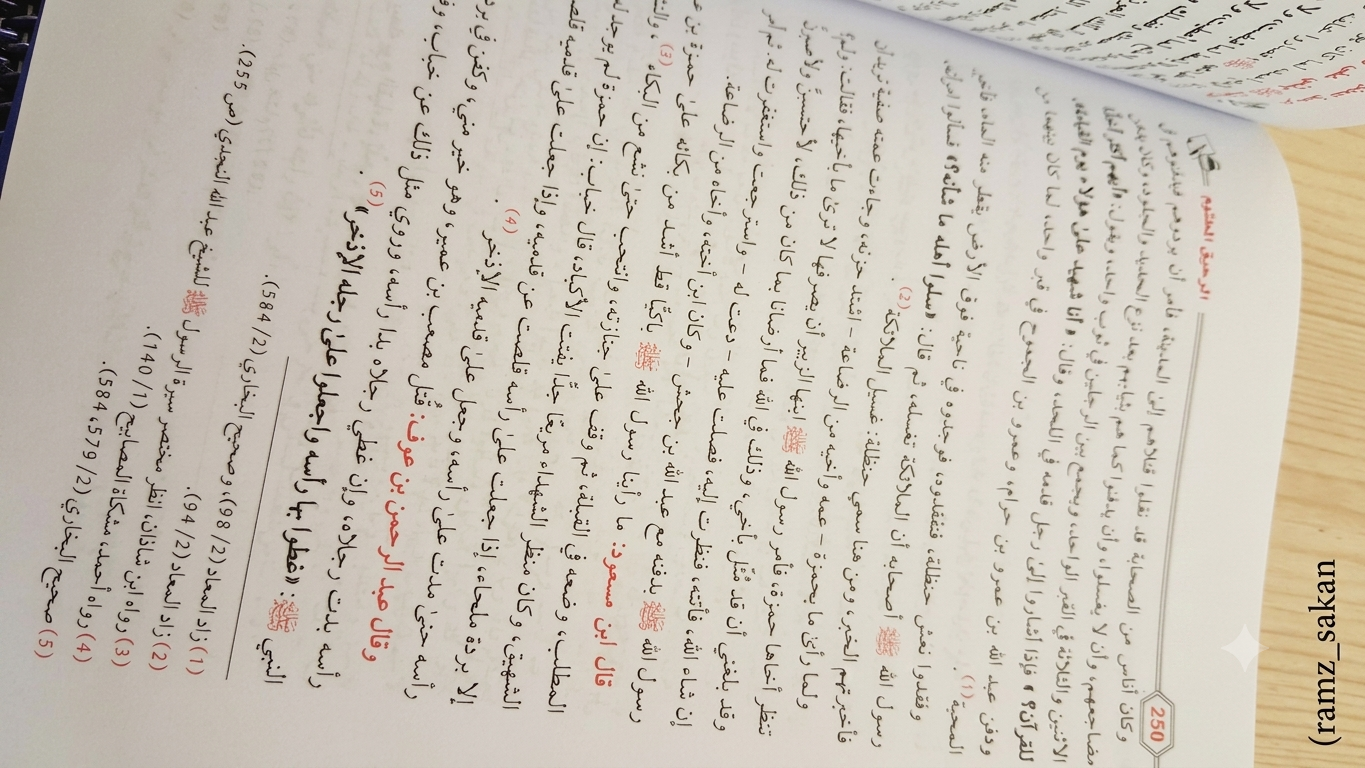 الرحيق المختوم
250
وكان أناس من الصحابة قد نقلوا قتلاهم إلى المدينة، فأمر أن يردوهم فيدفنوهم في
مضاجعهم، وأن لا يغسلوا، وأن يدفنوا كما هم بثيابهم بعد نزع الحديد والجلود، وكان يدفن
الاثنين والثلاثة في القبر الواحد، ويجمع بين الرجلين في ثوب واحد، ويقول: «أيهم أكثر أخذًا
للقرآن؟» فإذا أشاروا إلى رجل قدمه في اللحد، وقال: «أنا شهيد على هؤلاء يوم القيامة»،
ودفن عبد الله بن عمرو بن حرام، وعمرو بن الجموح في قبر واحد، لما كان بينهما من
المحبة (1).
وفقدوا نعش حنظلة، فتفقدوه، فوجدوه في ناحية فوق الأرض يقطر منه الماء، فأخبر
رسول الله ﷺ أصحابه أن الملائكة تغسله، ثم قال: «سلوا أهله ما شأنه؟» فسألوا امرأته،
فأخبرتهم الخبر، ومن هنا سمي حنظلة: غسيل الملائكة (2).
ولما رأى ما بحمزة – عمه وأخيه من الرضاعة – اشتد حزنه، وجاءت عمته صفية تريد أن
تنظر أخاها حمزة، فأمر رسول الله ﷺ ابنها الزبير أن يصرفها لا ترى ما بأخيها، فقالت: ولم؟
وقد بلغني أن قد مُثِّل بأخي، وذلك في الله فما أرضانا بما كان من ذلك، لأحتسبنَّ ولأصبرنَّ
إن شاء الله، فأتته، فنظرت إليه، فصلت عليه – دعت له – واسترجعت واستغفرت له. ثم أمر
رسول الله ﷺ بدفنه مع عبد الله بن جحش – وكان ابن أخته، وأخاه من الرضاعة.
قال ابن مسعود: ما رأينا رسول الله ﷺ باكيًا قط أشد من بكائه على حمزة بن عبد
المطلب، وضعه في القبلة، ثم وقف على جنازته، وانتحب حتى نشع من البكاء (3)، والنشع:
الشهيق، وكان منظر الشهداء مريعًا جدًّا يفتت الأكباد، قال خباب: إن حمزة لم يوجد له كفن
إلا بردة ملحاء، إذا جعلت على رأسه قلصت عن قدميه، وإذا جعلت على قدميه قلصت عن
رأسه حتى مدت على رأسه، وجعل على قدميه الإذخر (4).
وقال عبد الرحمن بن عوف: قُتل مصعب بن عمير، وهو خير مني، وكفن في بردة
رأسه بدت رجلاه، وإن غطي رجلاه بدا رأسه، وروي مثل ذلك عن خباب، وفيه
النبي ﷺ: «غطوا بها رأسه واجعلوا على رجله الإذخر» (5).
(1) زاد المعاد (98/2)، وصحيح البخاري (584/2).
(2) زاد المعاد (94/2).
(3) رواه ابن شاذان، انظر مختصر سيرة الرسول ﷺ للشيخ عبد الله النجدي (ص 255).
(4) رواه أحمد، مشكاة المصابيح (140/1).
(5) صحيح البخاري (579/2، 584).
(ramz_sakan